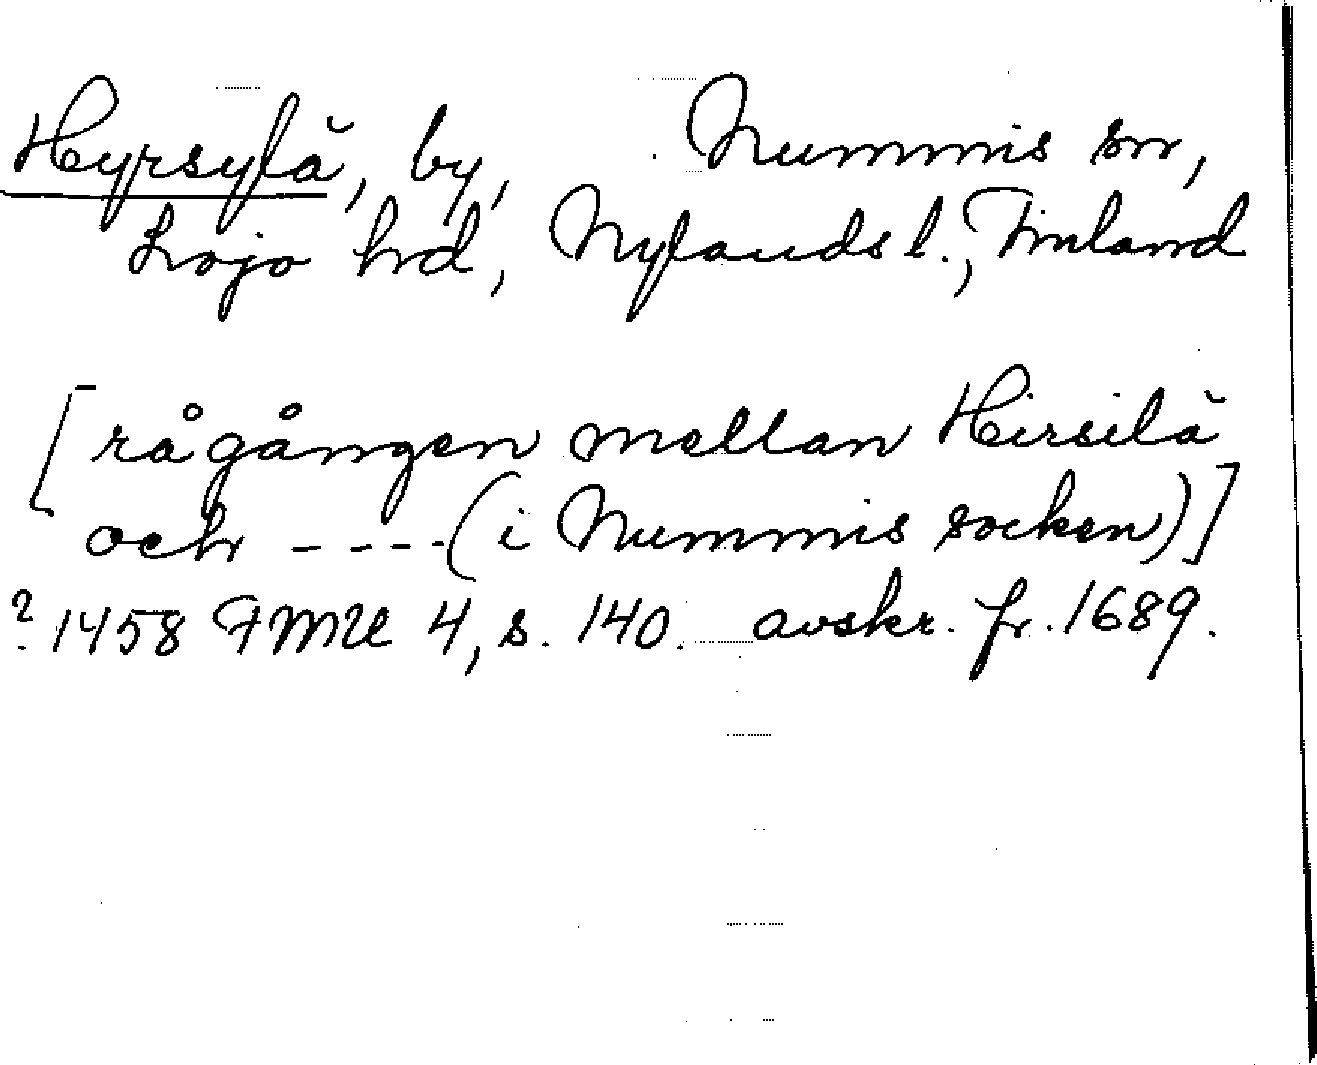 Hyrsylä, by, Nummis sn,
Lojo hd, Nylands l., Finland
[rågången mellan Hirsilä
och ---- (i Nummis socken)]
? 1458 FMU 4, s. 140. avskr. fr. 1689.